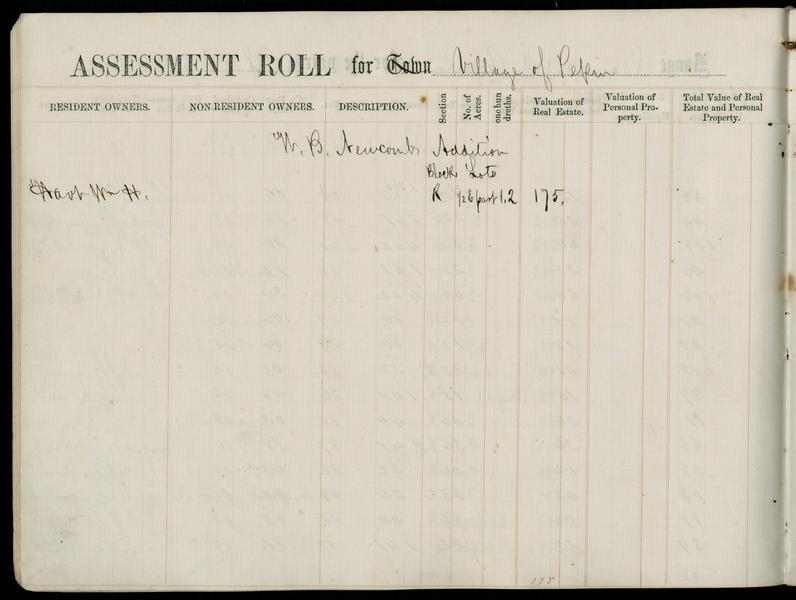 ASSESSMENT ROLL for Town Village of Pepin
RESIDENT OWNERS. NON-RESIDENT OWNERS. DESCRIPTION. Section No. of Acres. one hun dreths. Valuation of Real Estate. Valuation of Personal Property. Total Value of Real Estate and Personal Property.
W. B. Newcombs Addition
Block Lots
Wm H. R ½ E part 1,2 175.
175